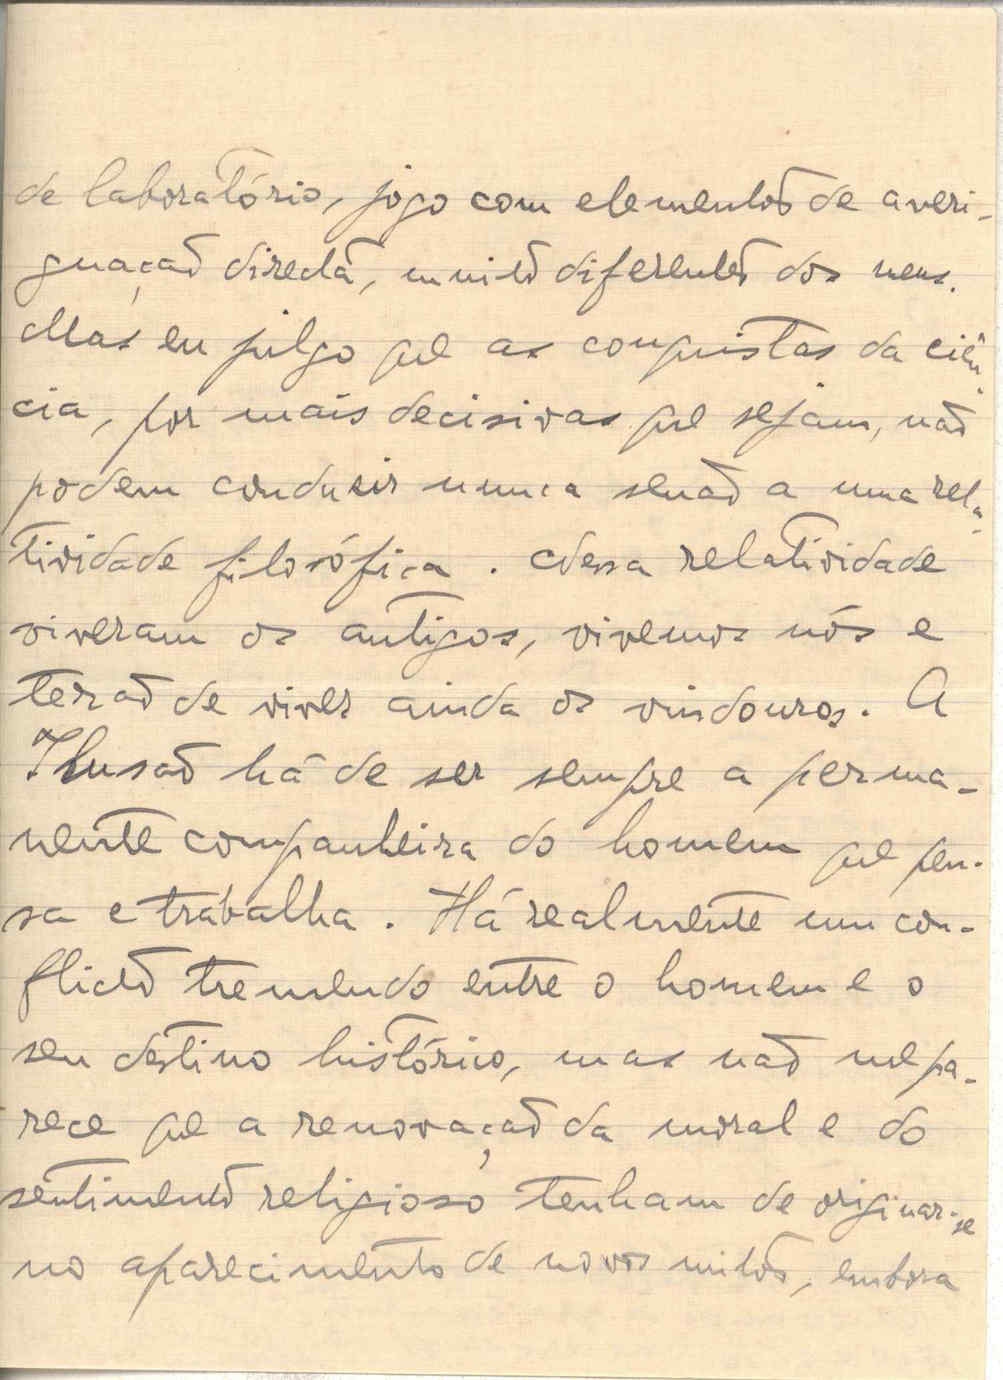 de laboratório, jogo com elementos de averi-
guação directa, muito diferentes dos meus.
Mas eu julgo que as conquistas da ciên-
cia, por mais decisivas que sejam, não
podem condusir nunca senão a uma rela-
tividade filosófica. Dessa relatividade
viveram os antigos, vivemos nós e
terão de viver ainda os vindouros. A
Ilusão há de ser sempre a perma-
nente companheira do homem que pen-
sa e trabalha. Há realmente um con-
flicto tremendo entre o homem e o
seu destino histórico, mas não me pa-
rece que a renovação da moral e do
sentimento religioso tenham de originar-se
no aparecimento de novos mitos, embora